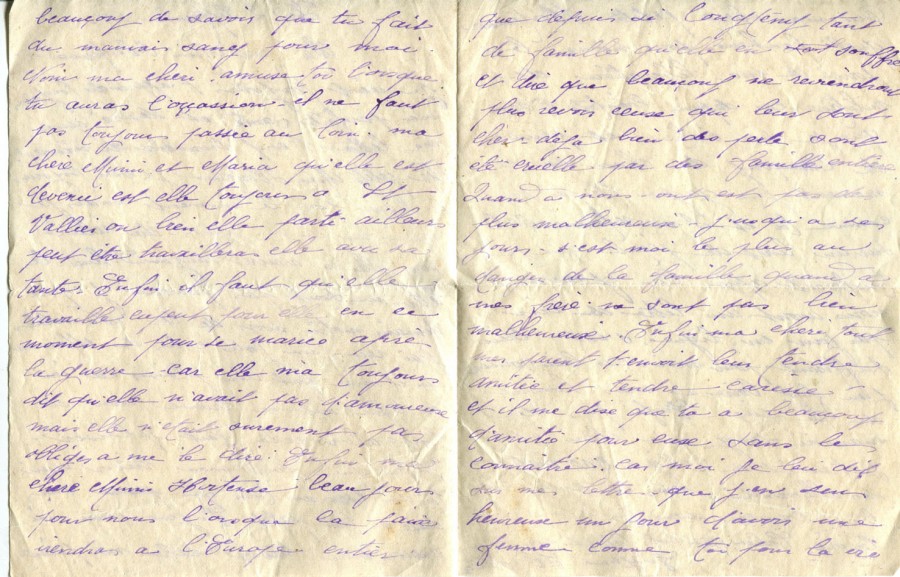 beaucoup de savoir que tu fait
du mauvais sang pour moi.
Non ma cheri amuse toi l'orsque
tu auras l'occassion. il ne faut
pas toujours passée au loin. ma
chere Mimi et Maria qu'elle est
devenu est elle toujours a St
Vallier ou bien elle parti ailleurs
peut être travailleras elle avec sa
tante. Enfin il faut qu'elle
travaille en ce
moment pour se mariée après
la guerre car elle m'a toujours
dit qu'elle n'avait pas d'amoureux
mais elle n'était surement pas
obliges a me le dire. Enfin ma
chere Mimi Hortense beau jours
pour nous l'orsque la paix
viendras a l'Europe entier
que depuis si longtemp tant
de famille qu'elle en sont souffre
et dire que beaucoup ne reviendront
plus revoir ceuse qui leur sont
cher déja bien des perte sont
été cruelle par des famille entière
Quand a nous ont est pas des
plus malheureux jusqu'a se
jours. s'est moi le plus au
danger de la famille quand a
mes frère sont pas bien
malheureuse. Enfin ma cheri tout
mes parent t'envoit leur tendre
amitée et tendre caresse
et il me dise que tu a beaucoup
d'amitée pour euse sans le
connaitre. cas moi je leur dit
sur mes lettre que j'en seu
heureuse un jour d'avoir une
femme comme toi pour la vie